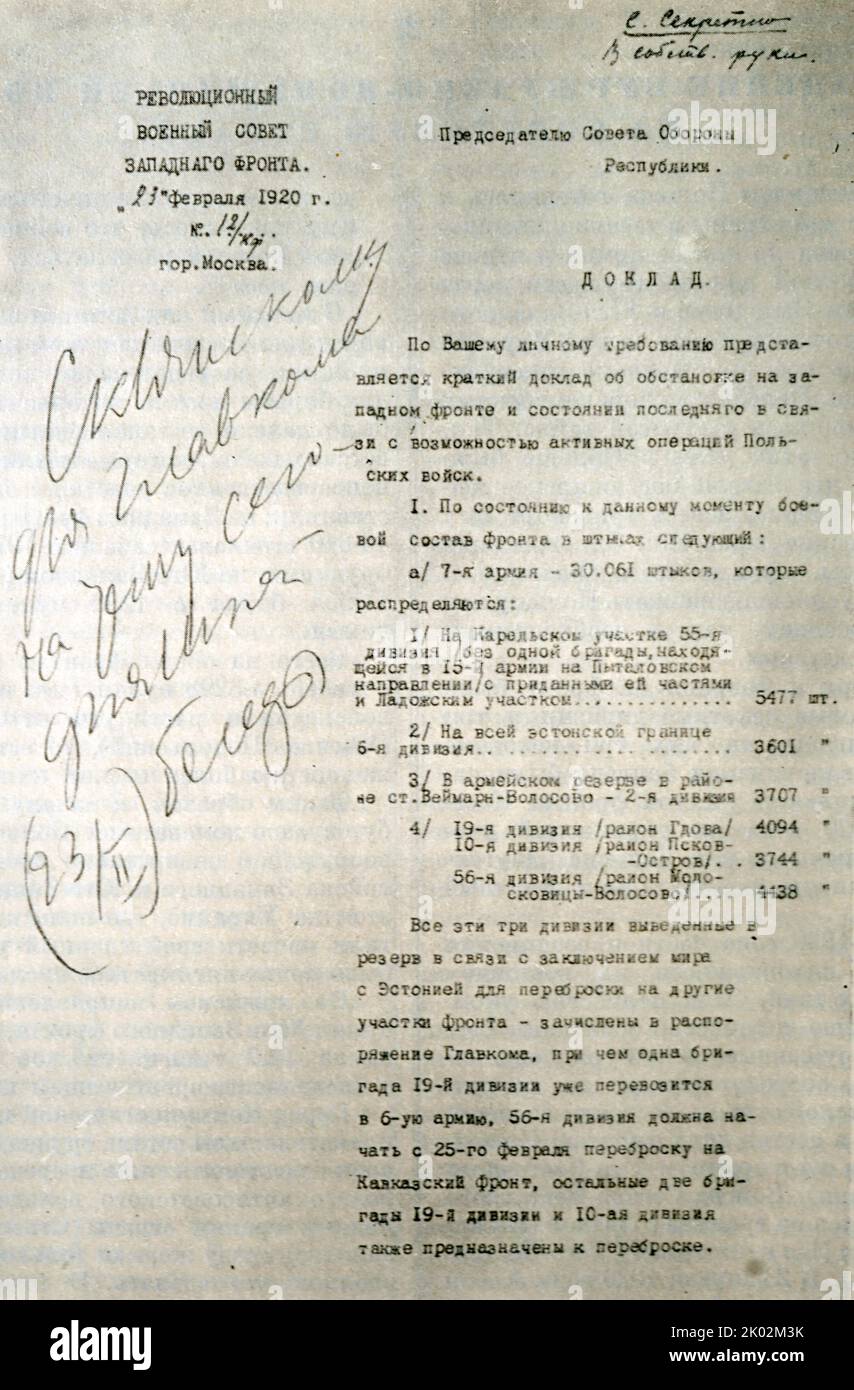 С. Секретно
В собств. руки.
РЕВОЛЮЦИОННЫЙ
ВОЕННЫЙ СОВЕТ
ЗАПАДНАГО ФРОНТА.
"23" февраля 1920 г.
№. 12/кр..
гор.Москва.
Председателю Совета Обороны
Республики.
ДОКЛАД.
По Вашему личному требованию предста-
вляется краткий доклад об обстановке на за-
падном фронте и состоянии последняго в свя-
зи с возможностью активных операций Поль-
ских войск.
I. По состоянию к данному моменту бое-
вой состав фронта в штыках следующий:
а/ 7-я армия - 30.061 штыков, которые
распределяются:
1/ На Карельском участке 55-я
дивизия /без одной бригады,находя-
щейся в 15-й армии на Пыталовском
направлении/с приданными ей частями
и Ладожским участком............... 5477 шт.
2/ На всей эстонской границе
6-я дивизия........................ 3601 "
3/ В армейском резерве в райо-
не ст.Веймарн-Волосово - 2-я дивизия 3707 "
4/ 19-я дивизия /район Гдова/ 4094 "
10-я дивизия /район Псков-
-Остров/. . 3744 "
56-я дивизия /район Моло-
сковицы-Волосово/. . 4438 "
Все эти три дивизии выведенные в
резерв в связи с заключением мира
с Эстонией для переброски на другие
участки фронта - зачислены в распо-
ряжение Главкома, при чем одна бри-
гада 19-й дивизии уже перевозится
в 6-ую армию, 56-я дивизия должна на-
чать с 25-го февраля переброску на
Кавказский фронт, остальные две бри-
гады 19-й дивизии и 10-ая дивизия
также предназначены к переброске.
Склянскому
для Главкома
на тему сего-
дняшней
беседы
(23/II)
alamy
Image ID: 2K02M3K
www.alamy.com